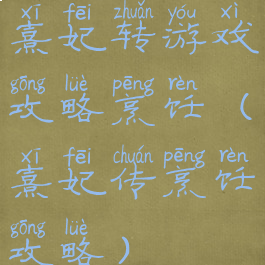 xī fēi zhuǎn yóu xì
熹妃转游戏
gōng lüè pēng rèn
攻略烹饪（
xī fēi chuán pēng rèn
熹妃传烹饪
gōng lüè
攻略）